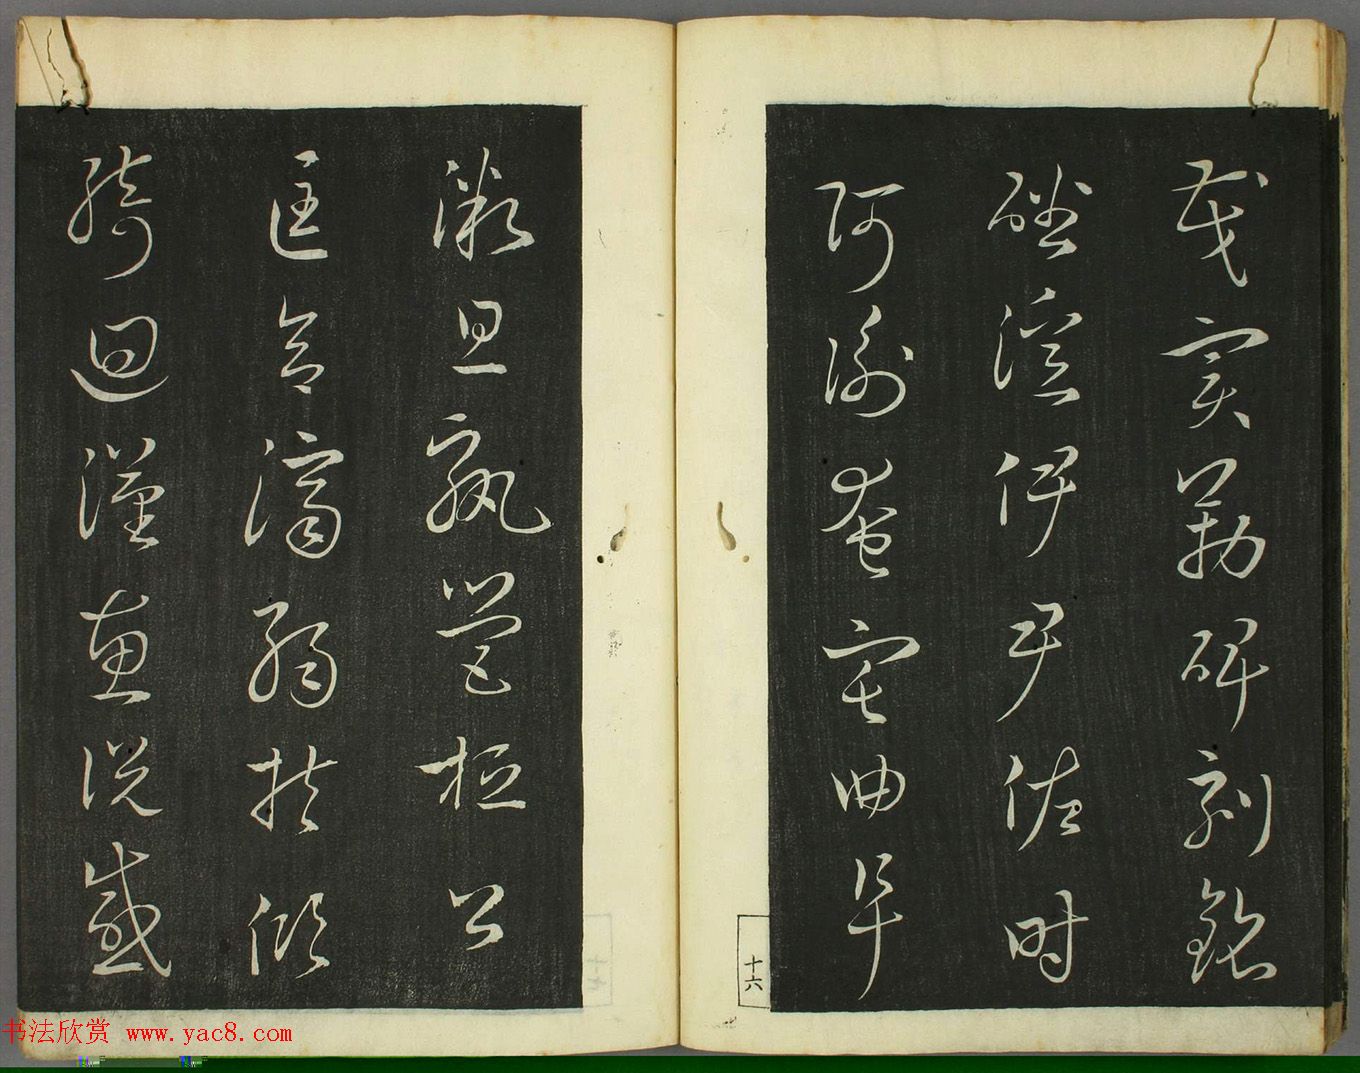 茂實勒碑刻銘
磻溪伊尹佐時
阿衡奄宅曲阜
微旦孰營桓公
匡合濟弱扶傾
綺迴漢惠說感
十六
书法欣赏 www.yac8.com